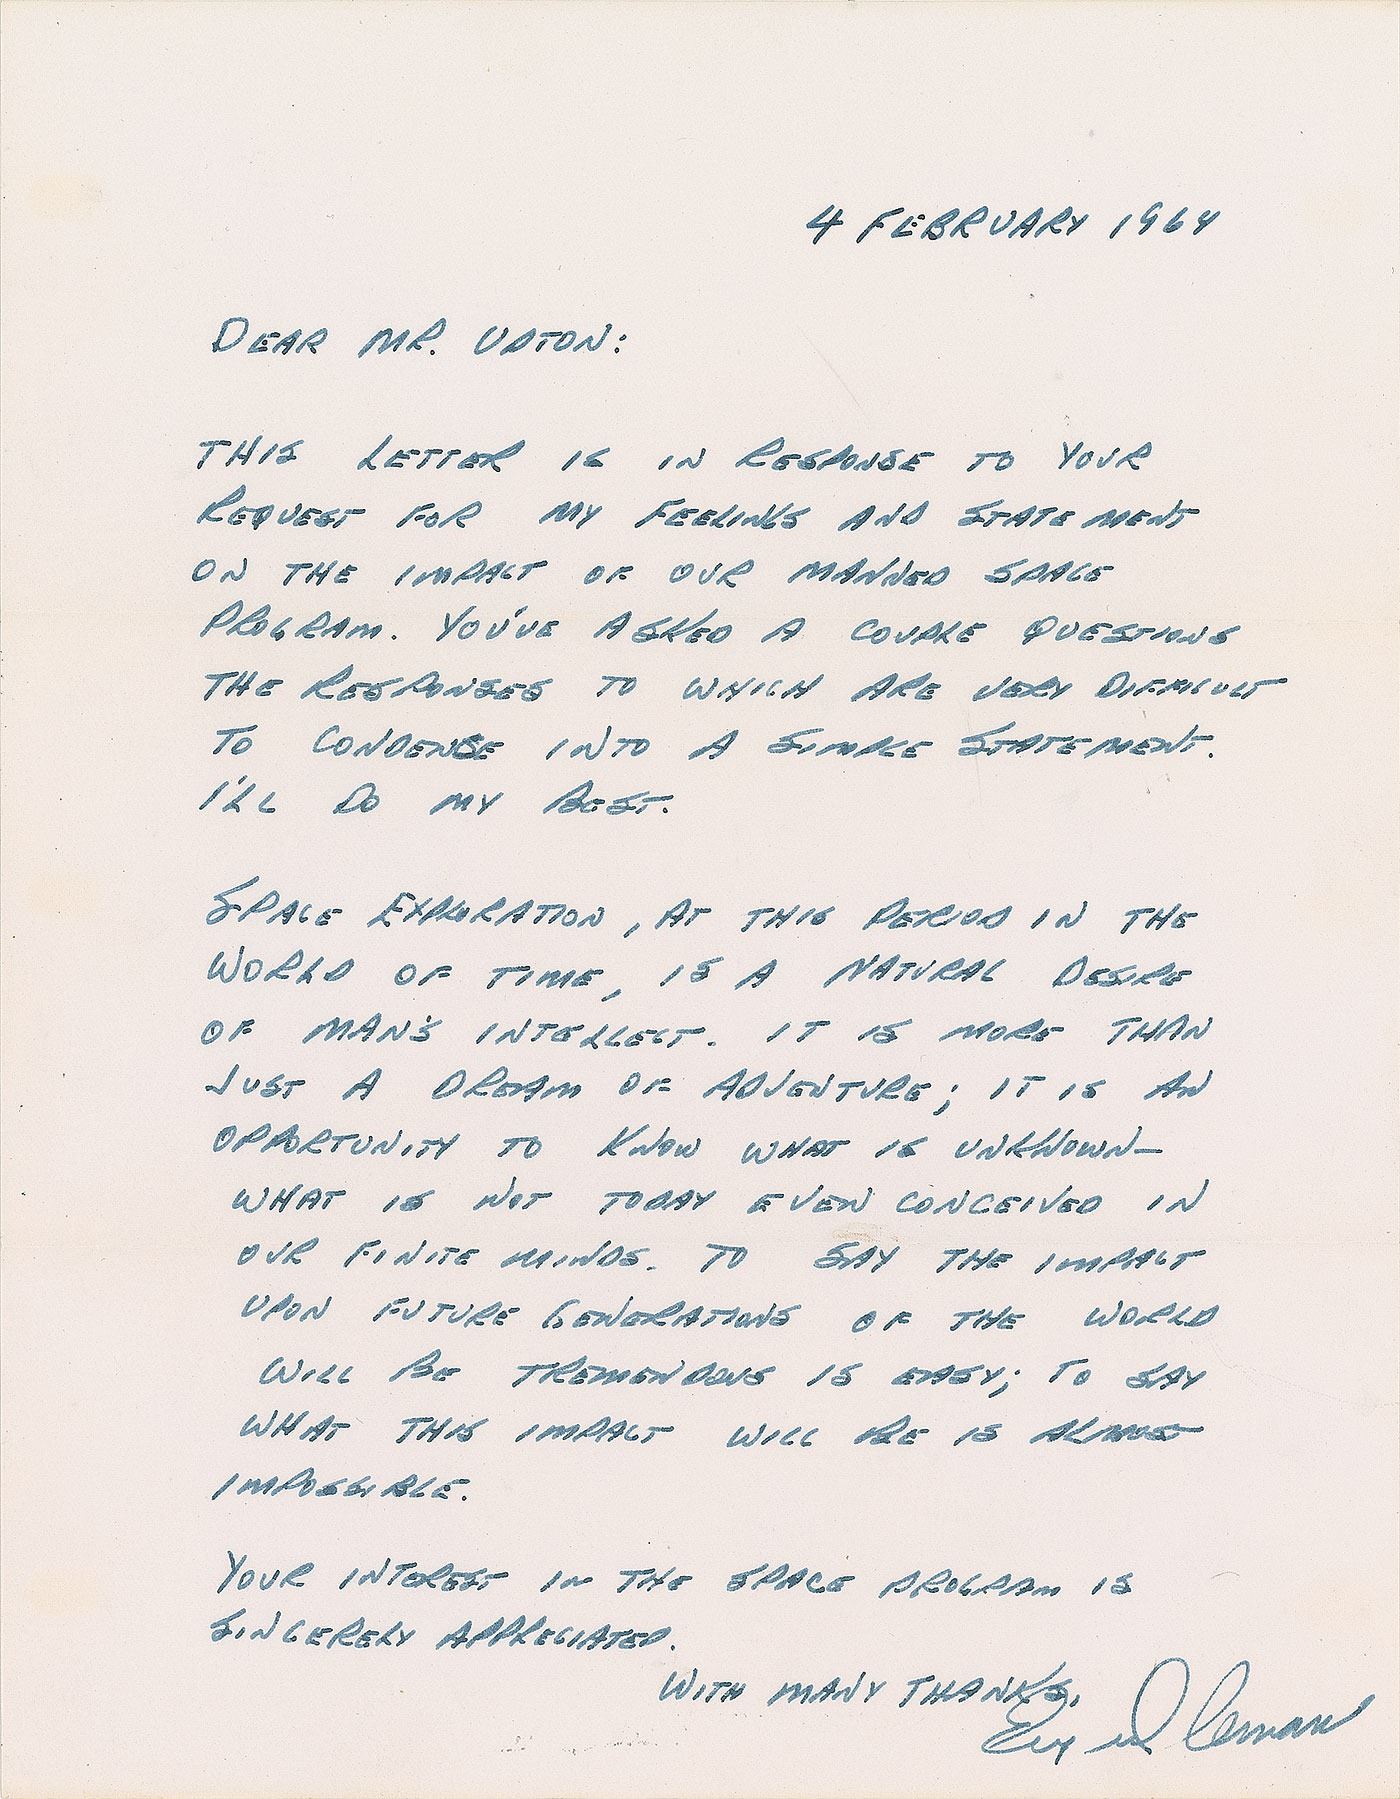 4 FEBRUARY 1964
DEAR MR. UPTON:
THIS LETTER IS IN RESPONSE TO YOUR
REQUEST FOR MY FEELINGS AND STATEMENT
ON THE IMPACT OF OUR MANNED SPACE
PROGRAM. YOU'VE ASKED A COUPLE QUESTIONS
THE RESPONSES TO WHICH ARE VERY DIFFICULT
TO CONDENSE INTO A SIMPLE STATEMENT.
I'LL DO MY BEST.
SPACE EXPLORATION, AT THIS PERIOD IN THE
WORLD OF TIME, IS A NATURAL DESIRE
OF MAN'S INTELLECT. IT IS MORE THAN
JUST A DREAM OF ADVENTURE; IT IS AN
OPPORTUNITY TO KNOW WHAT IS UNKNOWN—
WHAT IS NOT TODAY EVEN CONCEIVED IN
OUR FINITE MINDS. TO SAY THE IMPACT
UPON FUTURE GENERATIONS OF THE WORLD
WILL BE TREMENDOUS IS EASY; TO SAY
WHAT THIS IMPACT WILL BE IS ALMOST
IMPOSSIBLE.
YOUR INTEREST IN THE SPACE PROGRAM IS
SINCERELY APPRECIATED.
WITH MANY THANKS,
Eugene Cernan